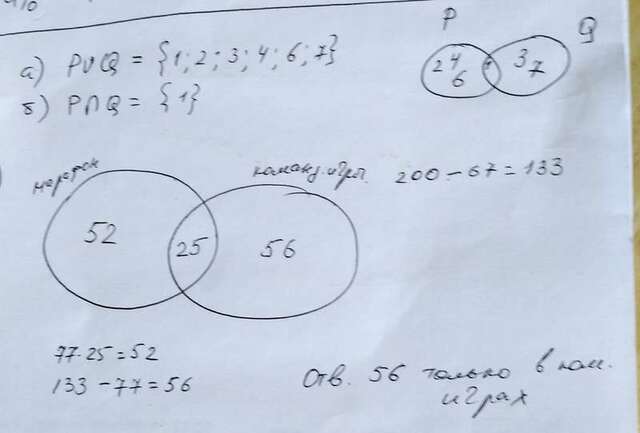 P Q
а) P∪Q = {1; 2; 3; 4; 6; 7}
2 4 6 3 7
б) P∩Q = {1}
марафон команд. игры 200 - 67 = 133
52 25 56
77·25 = 52
133 - 77 = 56
Отв. 56 только в ком.
играх